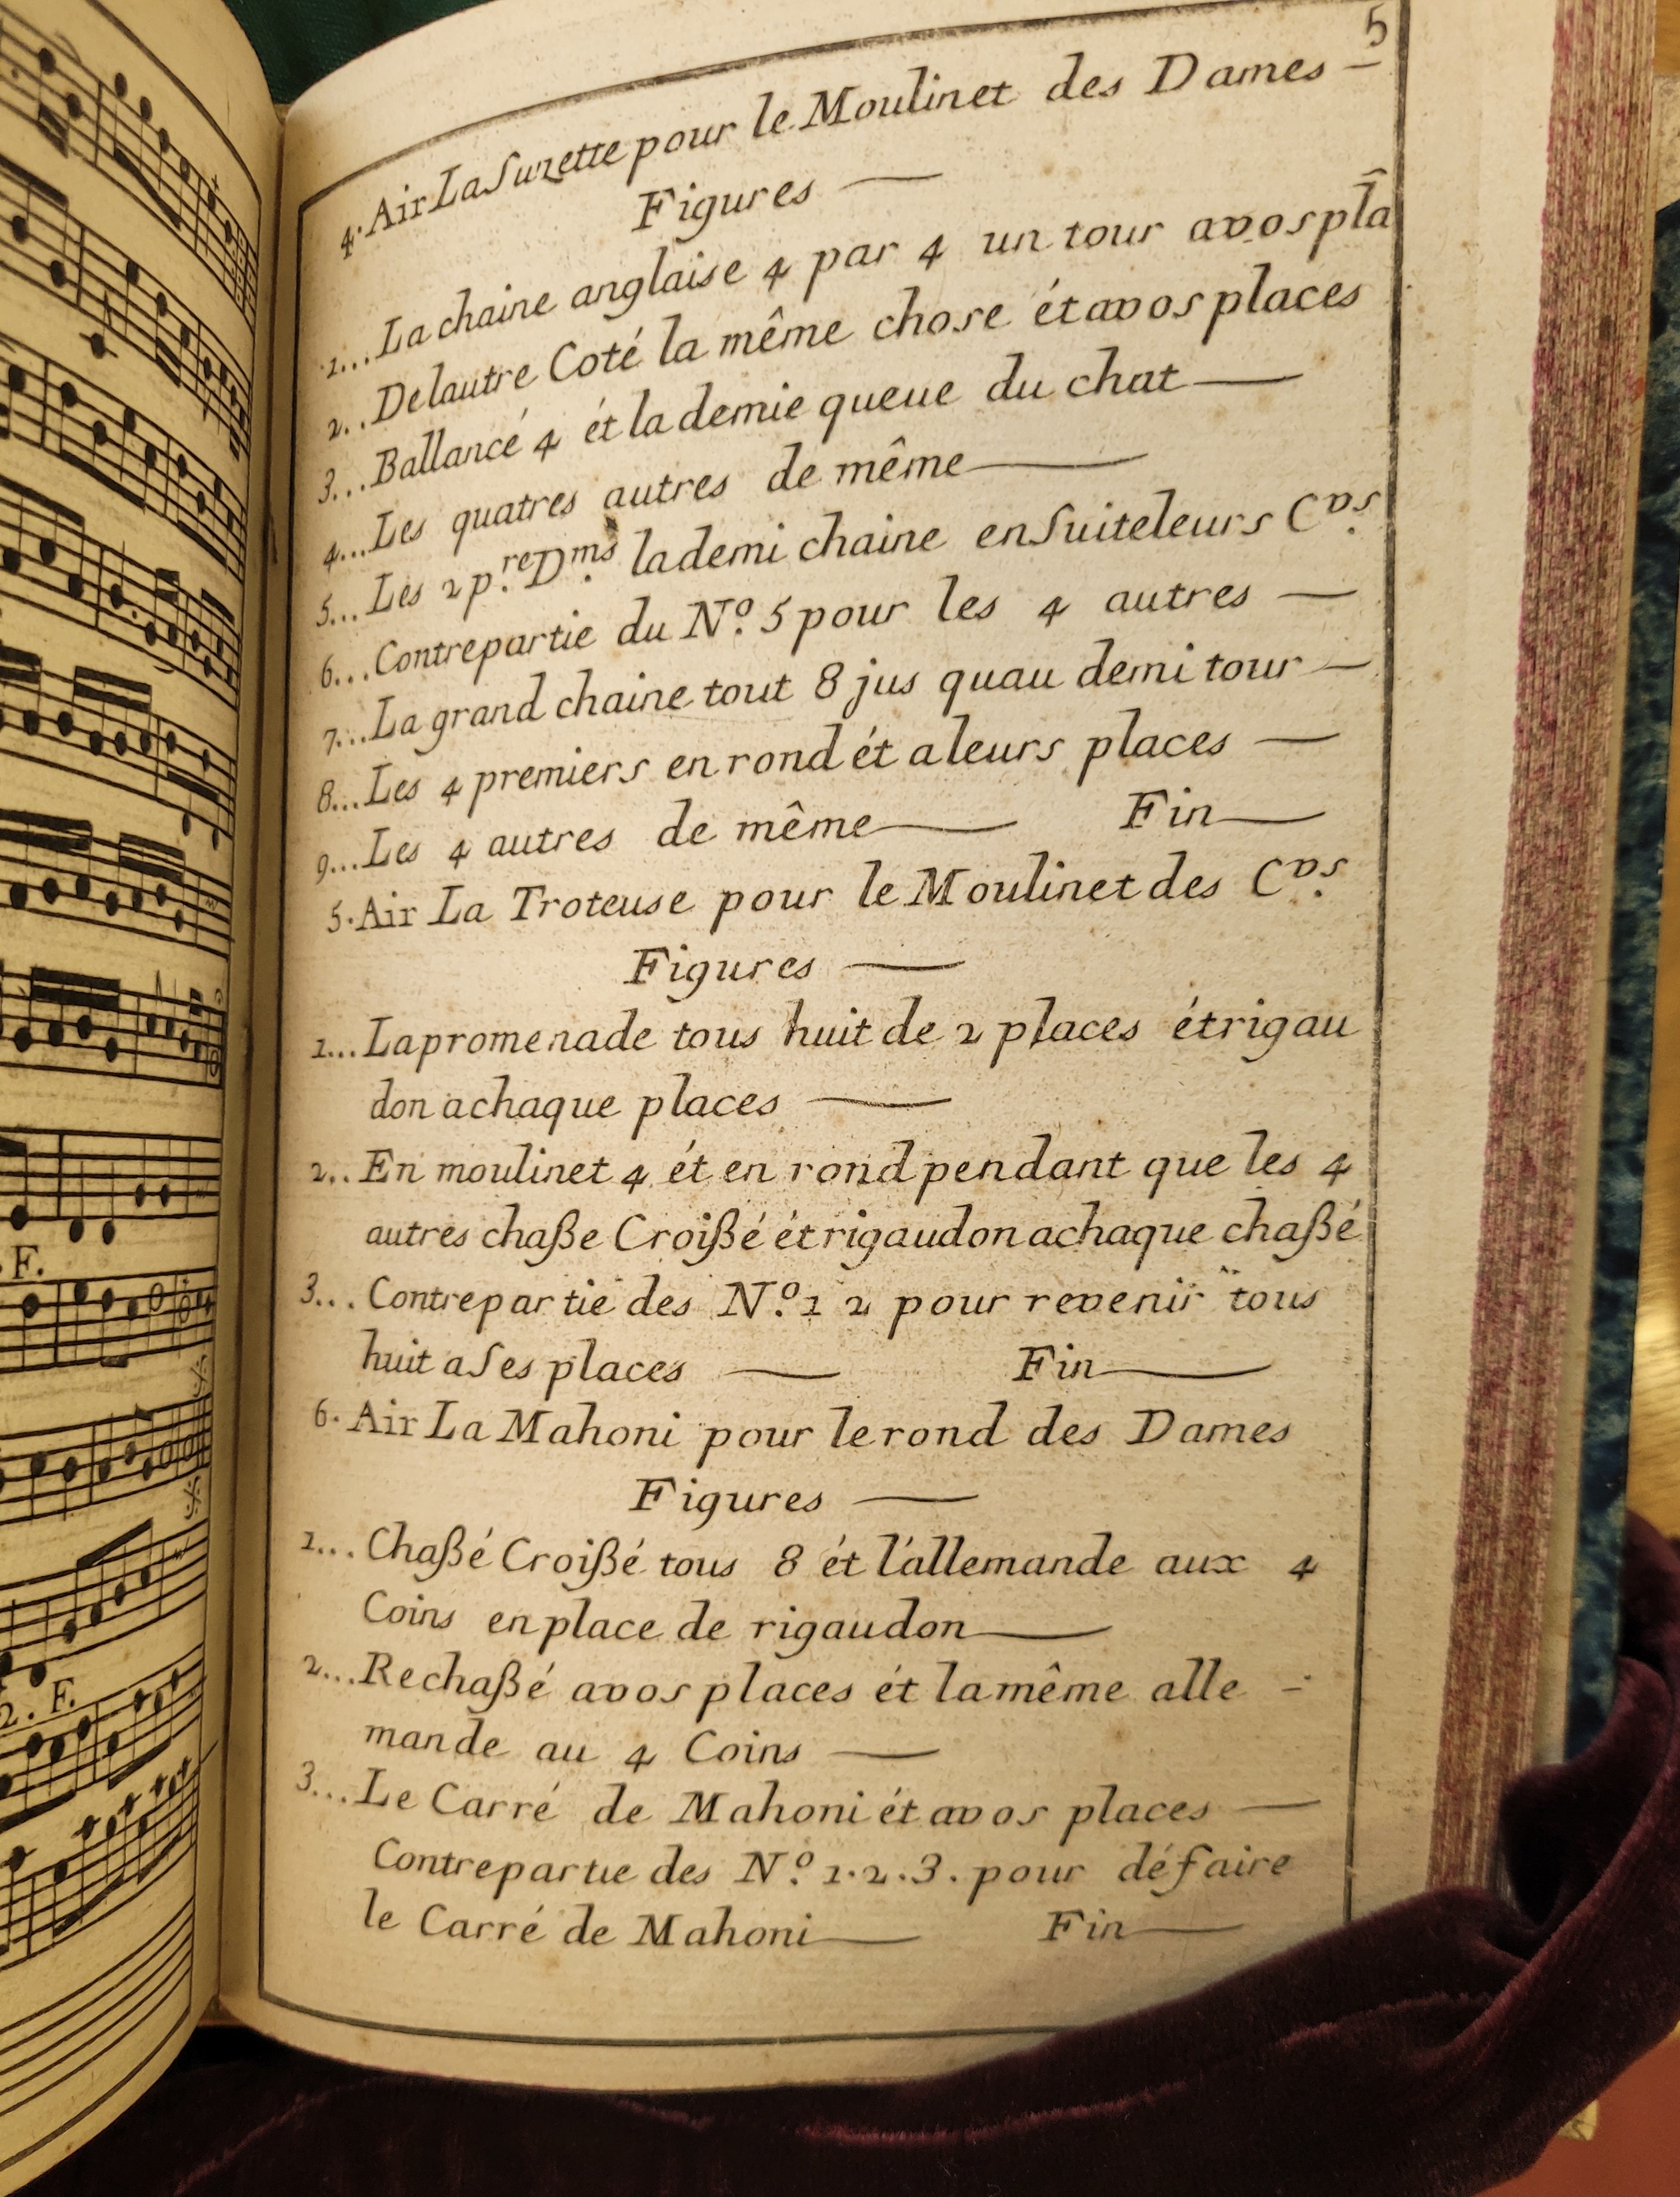 5
4. Air La Suzette pour le Moulinet des Dames —
Figures —
1... La chaine anglaise 4 par 4 un tour avos pla
2.. Delautre Coté la même chose ét avos places
3... Ballancé 4 ét la demie queue du chat —
4... Les quatres autres de même —
5... Les 2 p.re D.ms la demi chaine enSuite leurs C.vs
6... Contrepartie du N.o 5 pour les 4 autres —
7... La grand chaine tout 8 jus quau demi tour —
8... Les 4 premiers en rond ét a leurs places —
9... Les 4 autres de même — Fin —
5. Air La Troteuse pour le Moulinet des C.vs
Figures —
1... La promenade tous huit de 2 places ét rigau
don a chaque places —
2.. En moulinet 4 ét en rond pendant que les 4
autres chaße Croißé ét rigaudon a chaque chaßé
3... Contrepartie des N.o 1 2 pour revenir tous
huit a Ses places — Fin —
6. Air La Mahoni pour le rond des Dames
Figures —
1... Chaßé Croißé tous 8 ét l'allemande aux 4
Coins en place de rigaudon —
2... Rechaßé avos places ét la même alle -
mande au 4 Coins —
3... Le Carré de Mahoni ét avos places —
Contrepartie des N.o 1. 2. 3. pour défaire
le Carré de Mahoni — Fin —
F.
2. F.